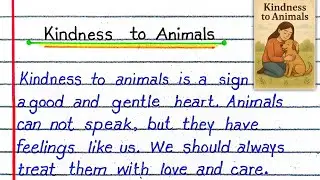 Kindness to Animals
Kindness
to Animals
Kindness to animals is a sign
a good and gentle heart. Animals
can not speak, but they have
feelings like us. We should always
treat them with love and care.